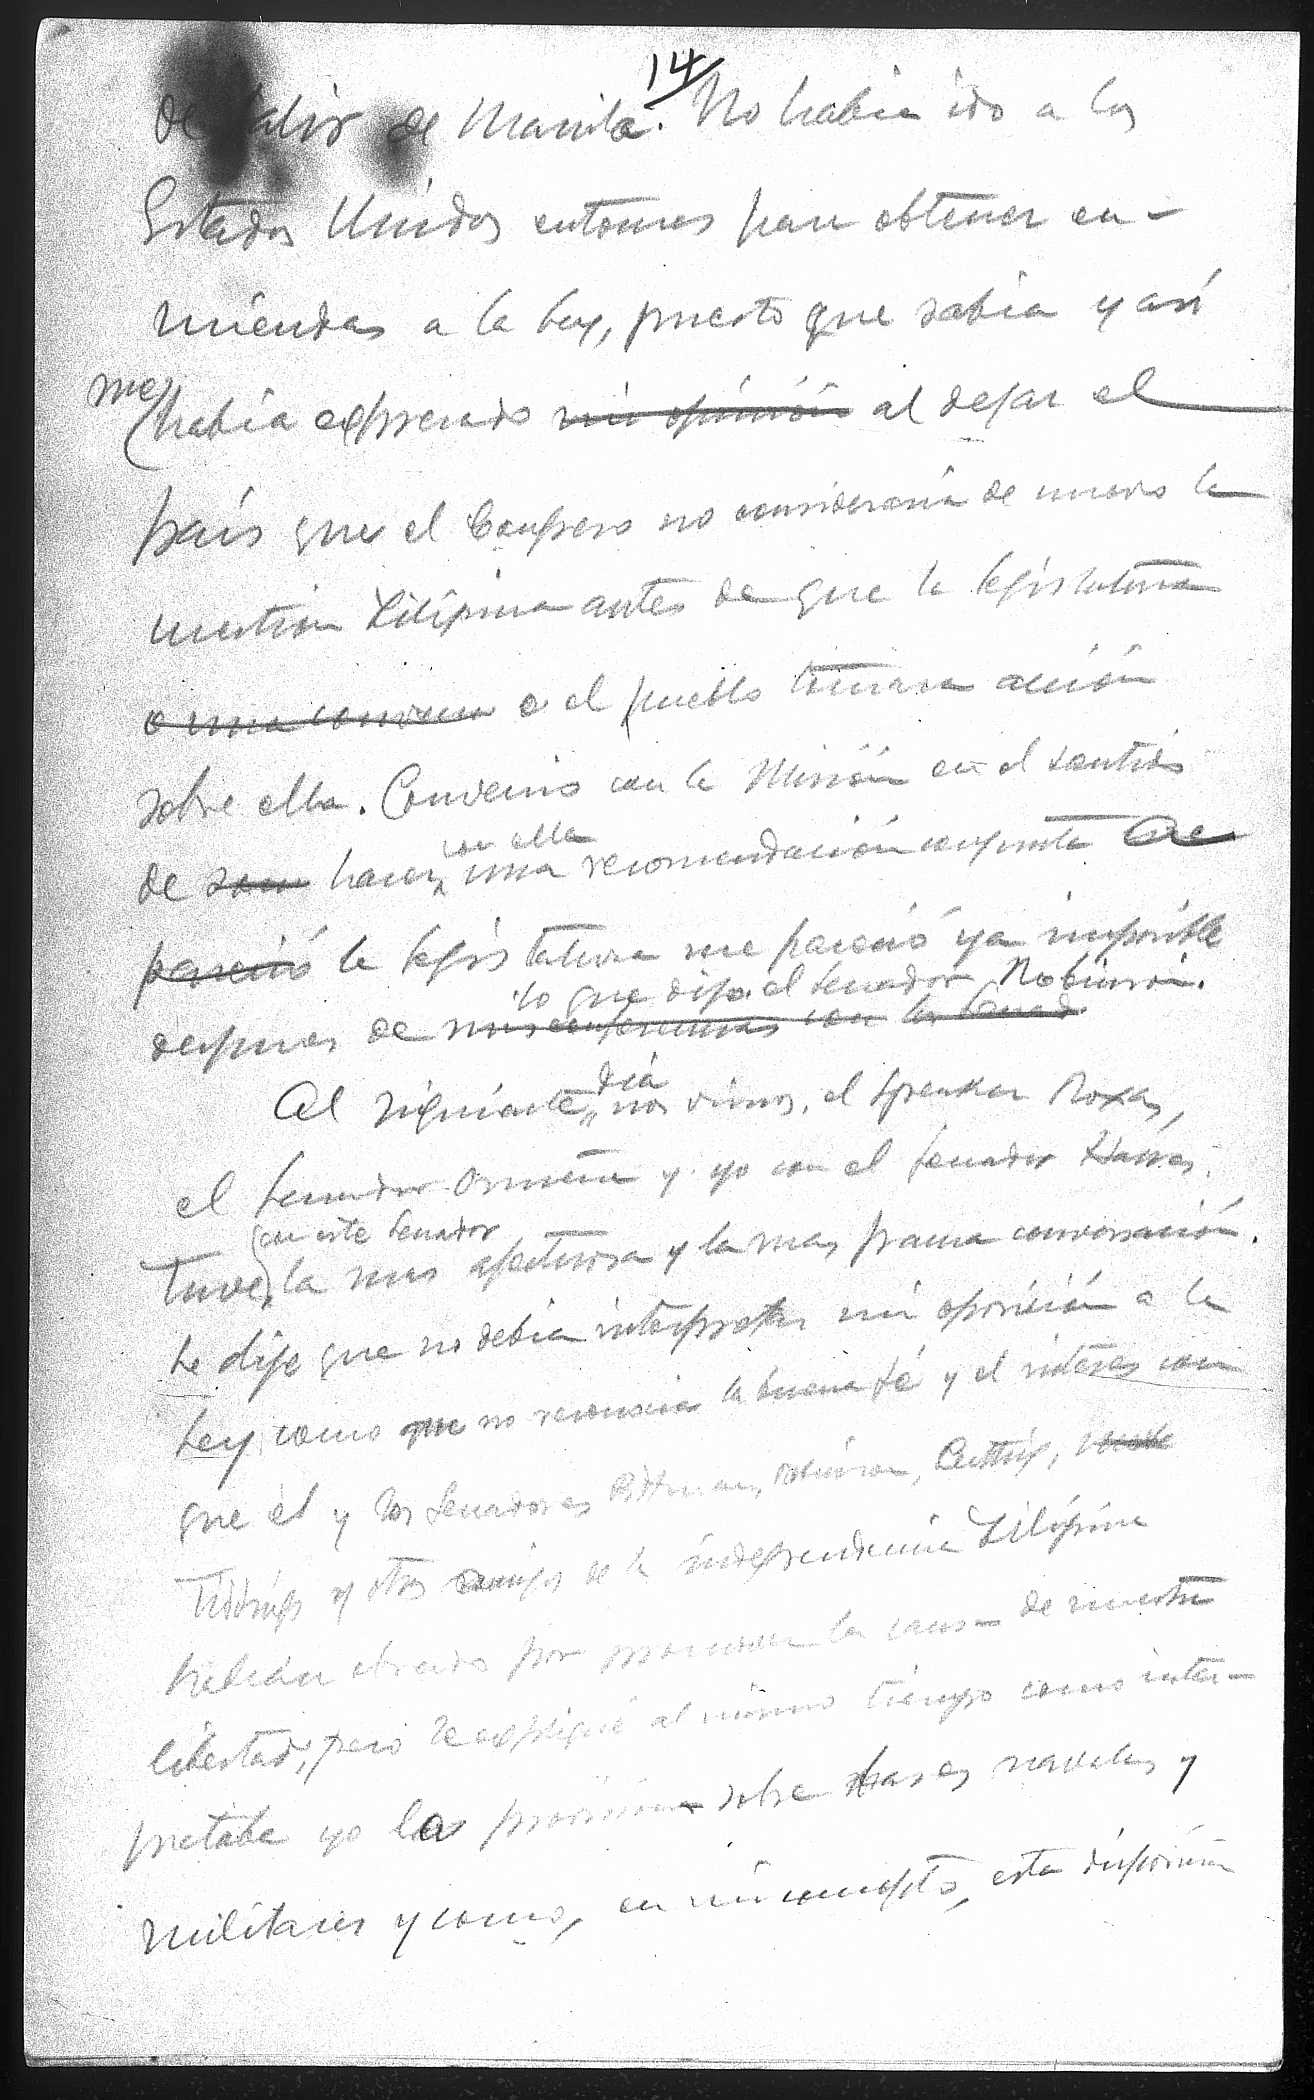 14
de salir de Manila. No habia ido a los
Estados Unidos entonces para obtener en-
miendas a la ley, puesto que sabia y asi
me habia expresado mi opinión al dejar el
país que el Congreso no consideraria de nuevo la
cuestion Filipina antes de que la legislatura
o una convencion o el pueblo tomara acción
sobre ella. Convenio con la Misión en el sentido
de hacer con ella una recomendación conjunta a
pareció la legislatura me pareció ya imposible
lo que dijo el Senador Robinson.
despues de mis conferencias con los Senad
Al siguiente dia nos vimos, el Speaker Roxas,
el Senador Osmeña y yo con el Senador Hawes.
con este Senador
Tuve la mas afectuosa y la mas franca conversación.
Le dije que no debia interpretar mi oposición a la
Ley como que no reconocia la buena fé y el interes con
que él y los Senadores Pittman, Robinson, Cutting,
Tydings y otros amigos de la independencia Filipina
habian obrado por promover la causa de nuestra
libertad, pero le expliqué al mismo tiempo como inter-
pretaba yo las provisiones sobre bases navales y
militares y como, en mi concepto, esta disposición